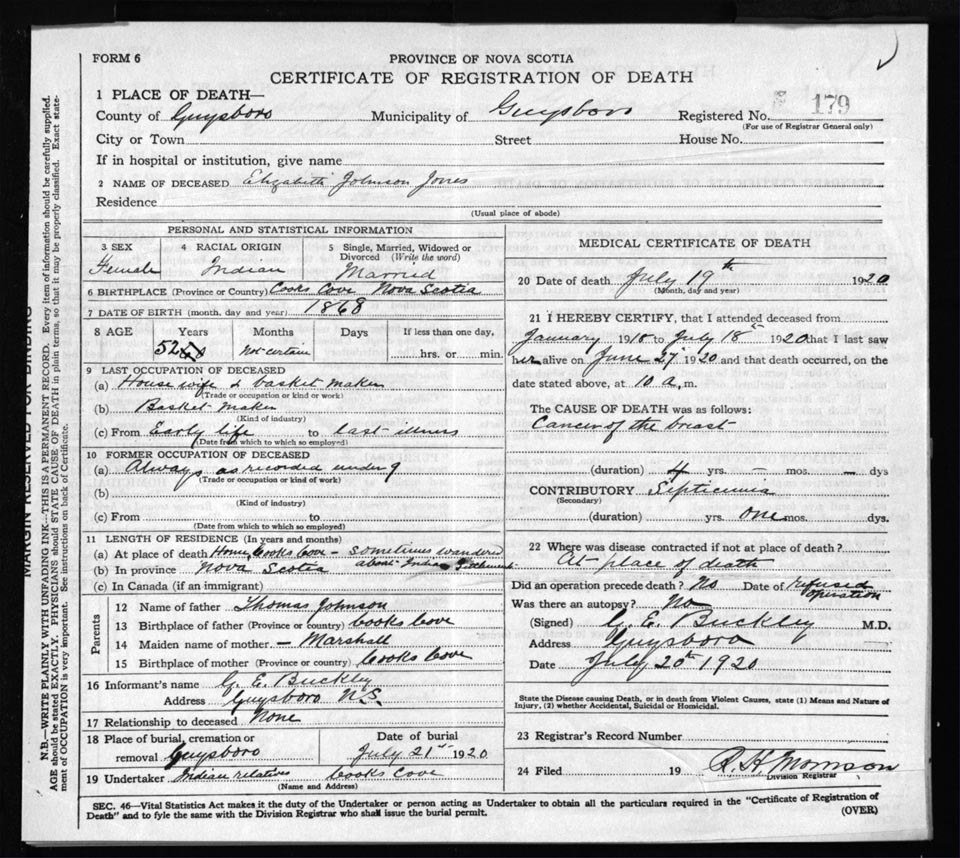 FORM 6
PROVINCE OF NOVA SCOTIA
CERTIFICATE OF REGISTRATION OF DEATH
1 PLACE OF DEATH—
County of Guysboro Municipality of Guysboro Registered No. 179
(For use of Registrar General only)
City or Town Street House No.
If in hospital or institution, give name
2 NAME OF DECEASED Elizabeth Johnson Jones
Residence
(Usual place of abode)
PERSONAL AND STATISTICAL INFORMATION
3 SEX 4 RACIAL ORIGIN 5 Single, Married, Widowed or
Divorced (Write the word)
Female Indian Married
6 BIRTHPLACE (Province or Country) Cooks Cove Nova Scotia
7 DATE OF BIRTH (month, day and year) 1868
8 AGE Years Months Days If less than one day,
52 Not certain hrs. or min.
9 LAST OCCUPATION OF DECEASED
(a) House wife & basket maker
(Trade or occupation or kind or work)
(b) Basket maker
(Kind of industry)
(c) From Early life to last illness
(Date from which to which so employed)
10 FORMER OCCUPATION OF DECEASED
(a) Always as recorded under 9
(Trade or occupation or kind of work)
(b)
(Kind of industry)
(c) From to
(Date from which to which so employed)
11 LENGTH OF RESIDENCE (In years and months)
(a) At place of death Home Cooks Cove - sometimes wandered
(b) In province Nova Scotia about Indian Settlement
(c) In Canada (if an immigrant)
Parents
12 Name of father Thomas Johnson
13 Birthplace of father (Province or country) Cooks Cove
14 Maiden name of mother — Marshall
15 Birthplace of mother (Province or country) Cooks Cove
16 Informant's name G. E. Buckley
Address Guysboro N.S.
17 Relationship to deceased None
18 Place of burial, cremation or Date of burial
removal Guysboro July 21st 1920
19 Undertaker Indian relatives Cooks Cove
(Name and Address)
MEDICAL CERTIFICATE OF DEATH
20 Date of death July 19th 1920
(Month, day and year)
21 I HEREBY CERTIFY, that I attended deceased from
January 1918 to July 18th 1920 that I last saw
her alive on June 27 1920 and that death occurred, on the
date stated above, at 10 a.m.
The CAUSE OF DEATH was as follows:
Cancer of the breast
(duration) 4 yrs. – mos. – dys
CONTRIBUTORY Septicemia
(Secondary)
(duration) yrs. one mos. dys.
22 Where was disease contracted if not at place of death?
At place of death
Did an operation precede death? No Date of refused operation
Was there an autopsy? No
(Signed) G. E. Buckley M.D.
Address Guysboro
Date July 20th 1920
State the Disease causing Death, or in death from Violent Causes, state (1) Means and Nature of
Injury, (2) whether Accidental, Suicidal or Homicidal.
23 Registrar's Record Number
24 Filed 19 R. H. Morrison
Division Registrar
SEC. 46—Vital Statistics Act makes it the duty of the Undertaker or person acting as Undertaker to obtain all the particulars required in the "Certificate of Registration of
Death" and to fyle the same with the Division Registrar who shall issue the burial permit. (OVER)
MARGIN RESERVED FOR BINDING
N.B.—WRITE PLAINLY WITH UNFADING INK—THIS IS A PERMANENT RECORD. Every item of information should be carefully supplied.
AGE should be stated EXACTLY. PHYSICIANS should STATE CAUSE OF DEATH in plain terms, so that it may be properly classified. Exact state-
ment of OCCUPATION is very important. See instructions on back of Certificate.